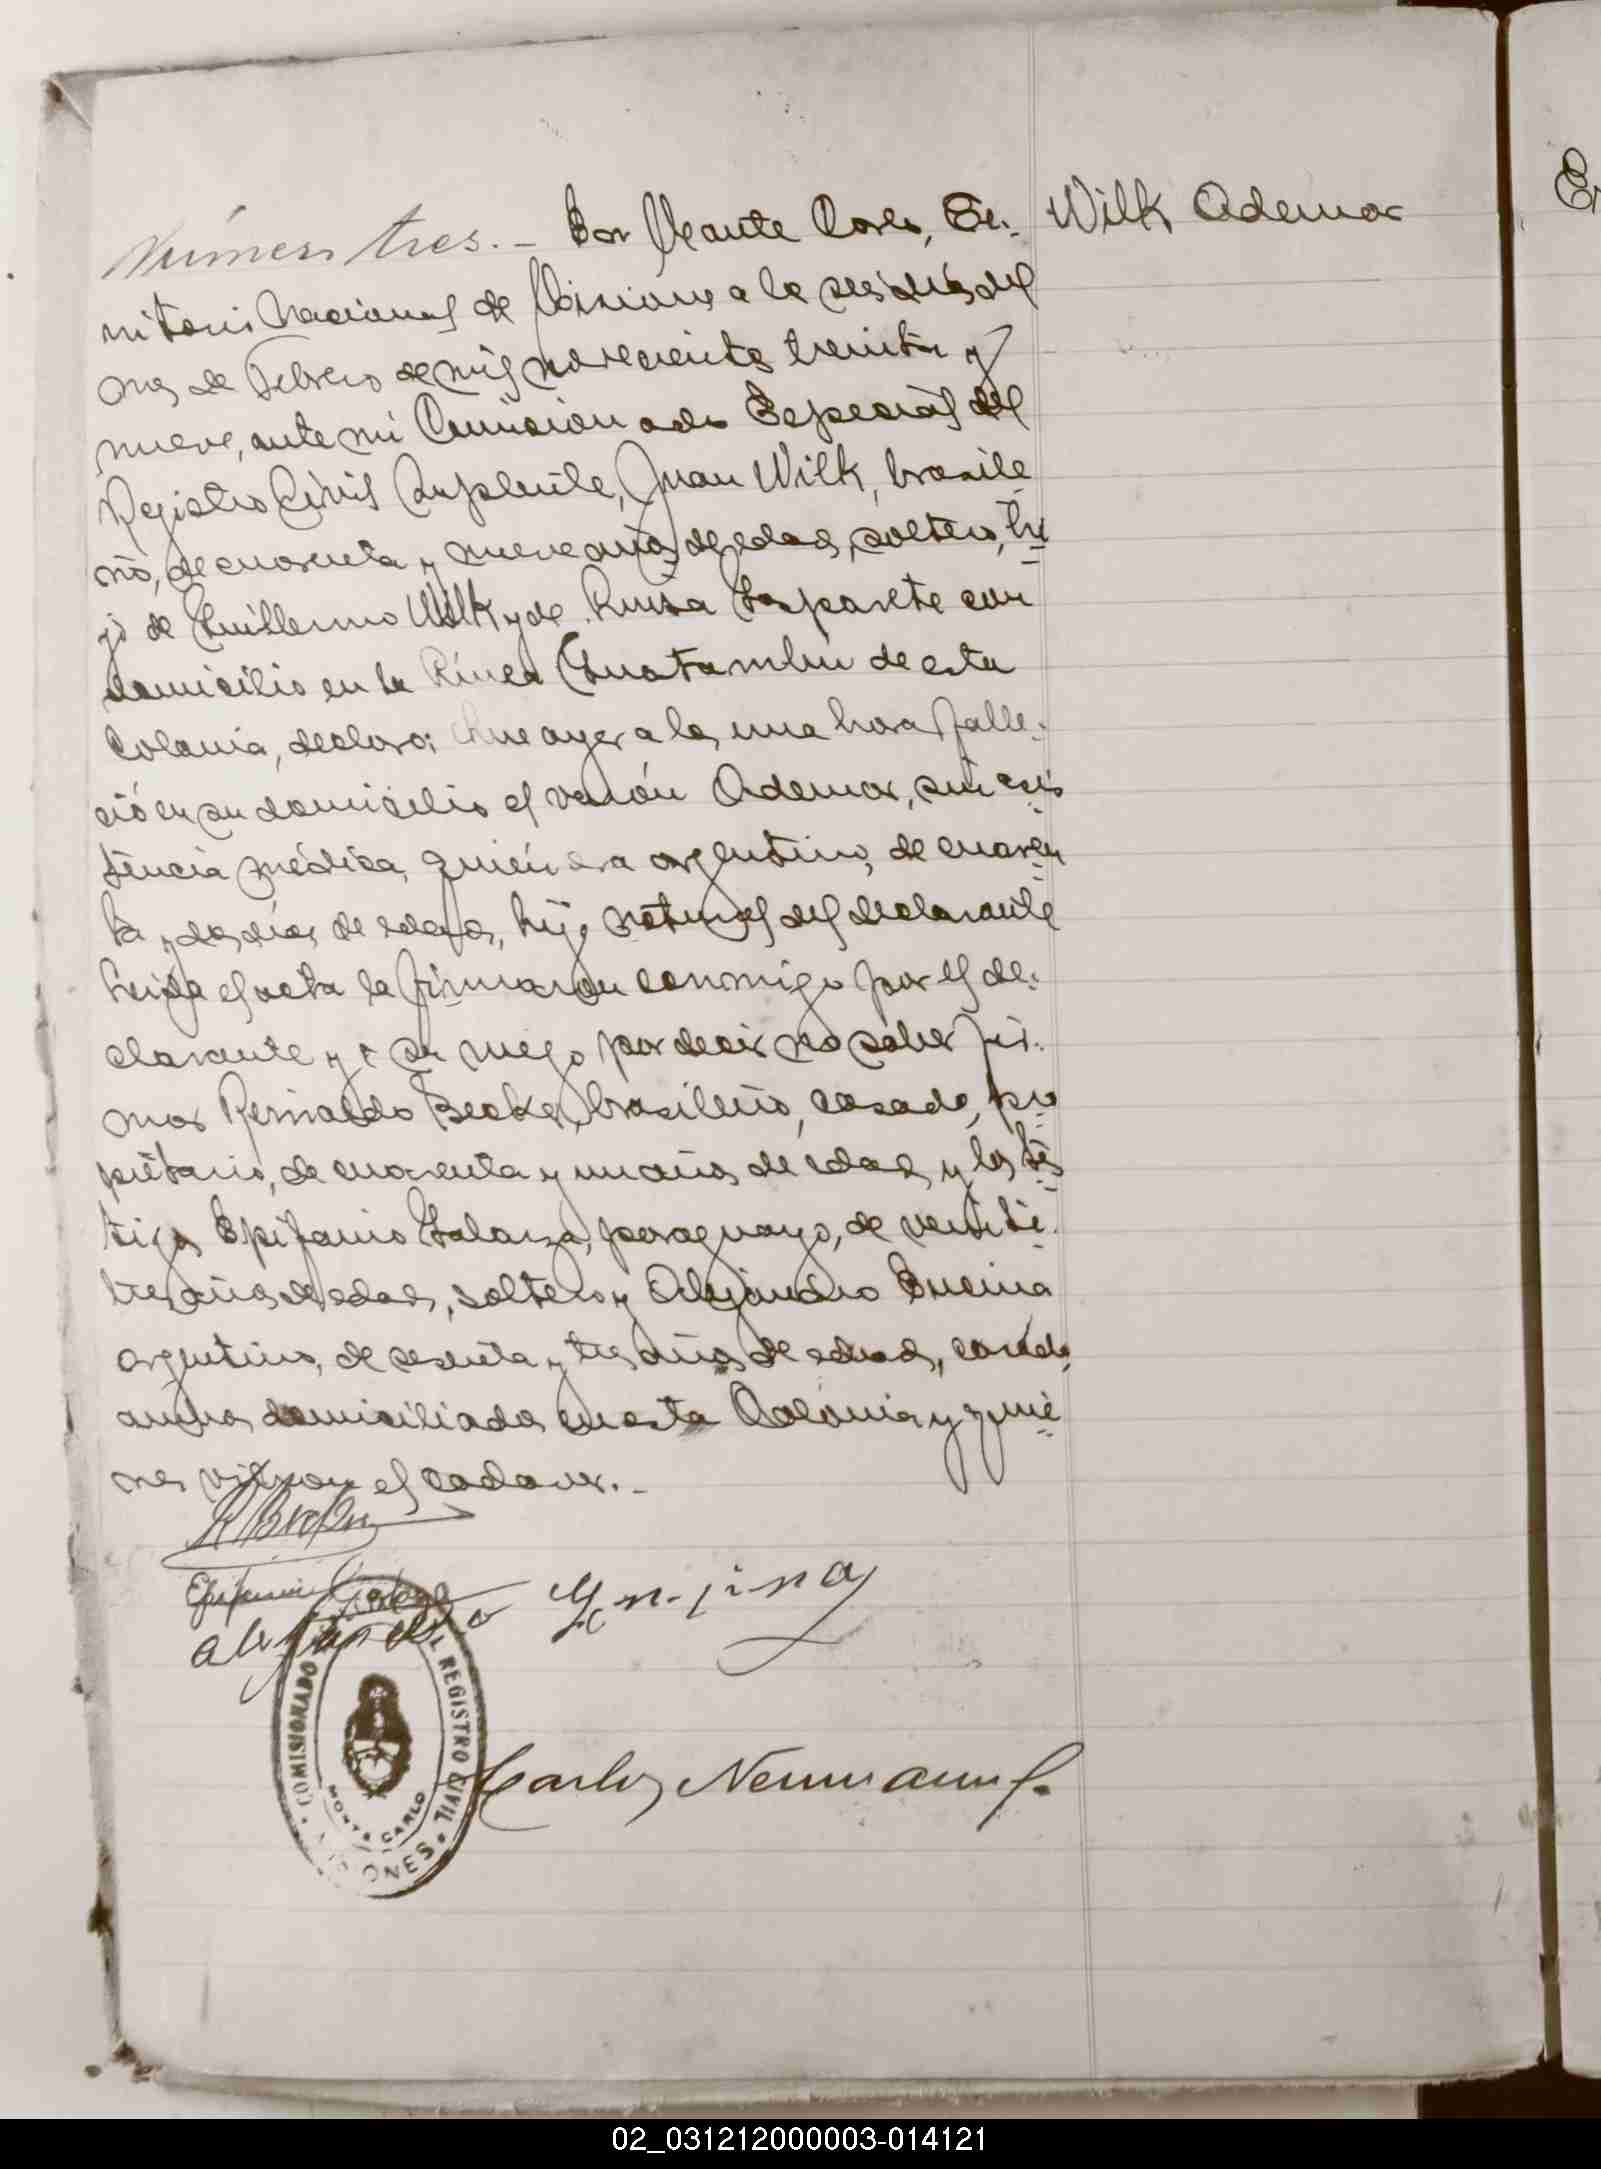 Número tres. - En Monte Carlo, Te- Wilk Ademar
rritorio Nacional de Misiones a los seis días del
mes de Febrero de mil novecientos treinta y
nueve, ante mi Comisionado Especial del
Registro Civil Suplente, Juan Wilk, brasile
ño, de cuarenta y nueve años de edad, soltero, hi
jo de Guillermo Wilk y de Luisa con
domicilio en la Línea Guatambú de esta
Colonia, declaró: Que ayer a las una hora falle-
ció en su domicilio el varón Ademar, sin asis
tencia médica, quién era argentino, de cuaren
ta y dos días de edad, hijo natural del declarante
Leída el acta la firmaron conmigo por el de-
clarante y a su ruego por decir no saber fir-
mar Reinaldo Becker, brasileño, casado, pro
pietario, de cuarenta y un años de edad y los tes
tigos Epifanio Galarza, paraguayo, de veinti-
tres años de edad, soltero y Alejandro Encina
argentino, de sesenta y tres años de edad, casado,
ambos domiciliados en esta Colonia y quie
nes vieron el cadaver. -
Epifanio Galarza
alejandro
COMISIONADO REGISTRO CIVIL
MONTE CARLO
MISIONES
Carlos Neumann
02_031212000003-014121